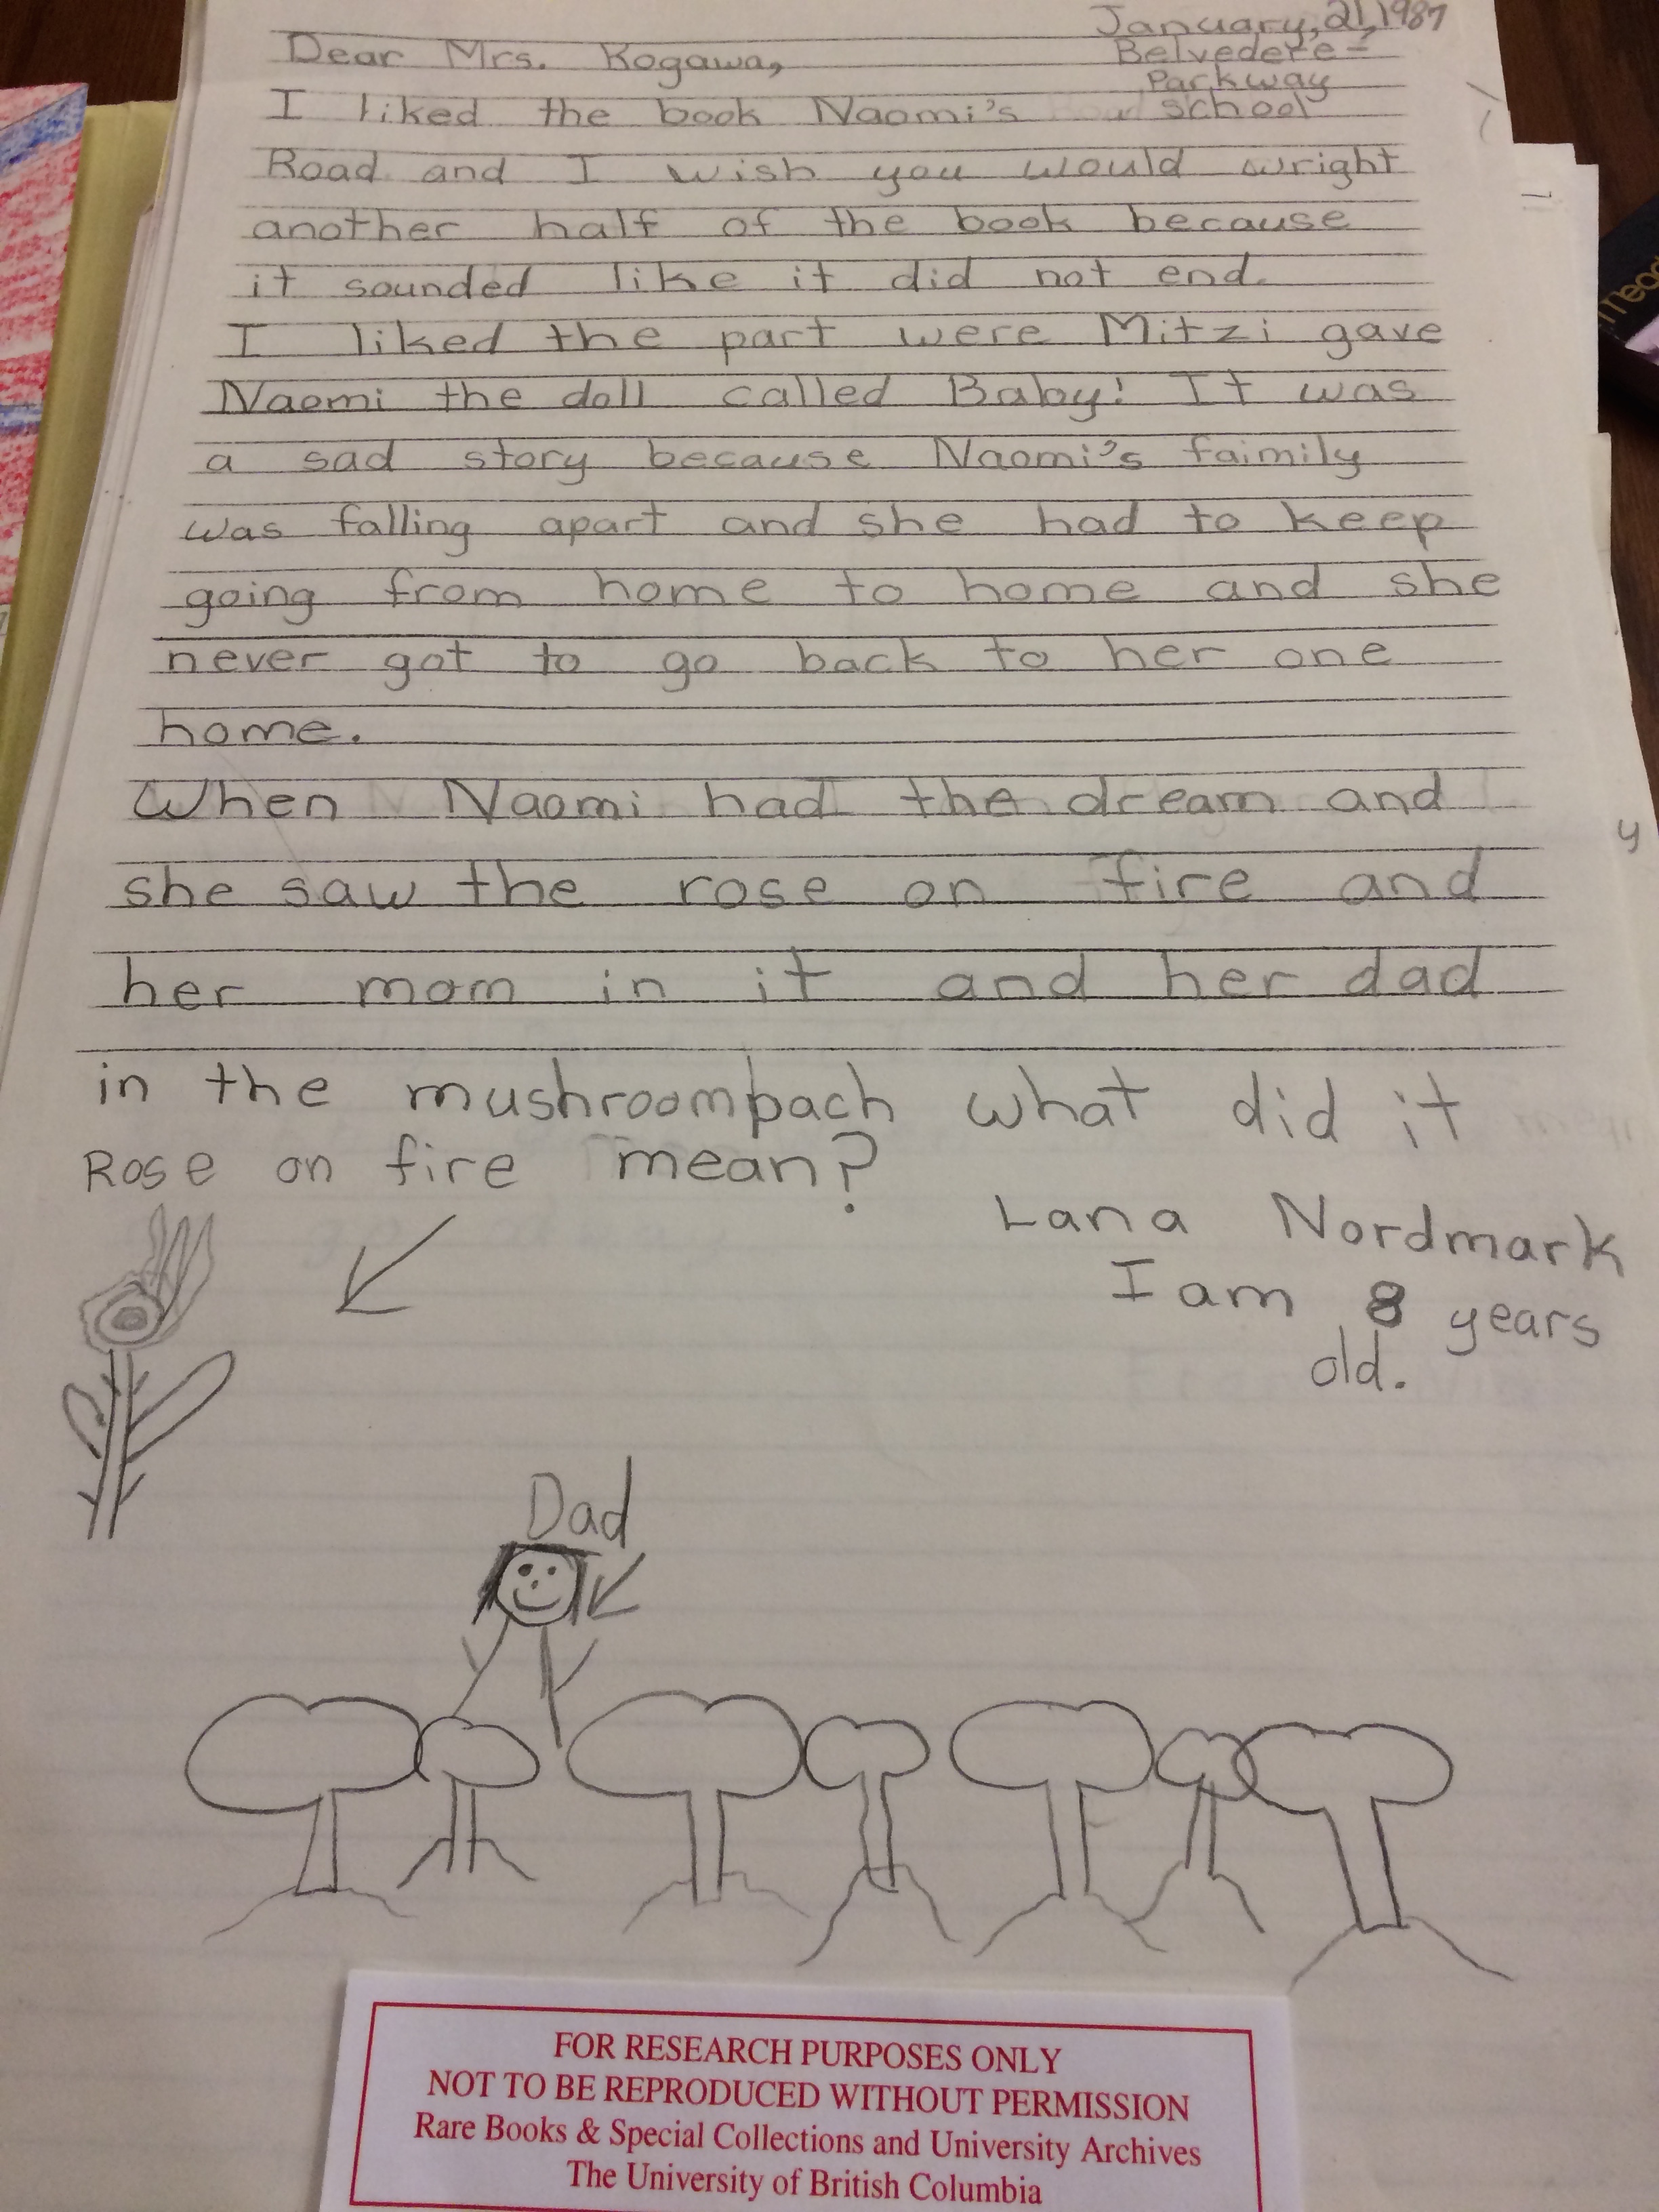 January, 21, 1987
Belvedere=
Parkway
school
Dear Mrs. Kogawa,
I liked the book Naomi's
Road and I wish you would wright
another half of the book because
it sounded like it did not end.
I liked the part were Mitzi gave
Naomi the doll called Baby! It was
a sad story because Naomi's faimily
was falling apart and she had to keep
going from home to home and she
never got to go back to her one
home.
When Naomi had the dream and
she saw the rose on fire and
her mom in it and her dad
in the mushroompach what did it
mean?
Rose on fire
Lana Nordmark
I am 8 years
old.
Dad
FOR RESEARCH PURPOSES ONLY
NOT TO BE REPRODUCED WITHOUT PERMISSION
Rare Books & Special Collections and University Archives
The University of British Columbia